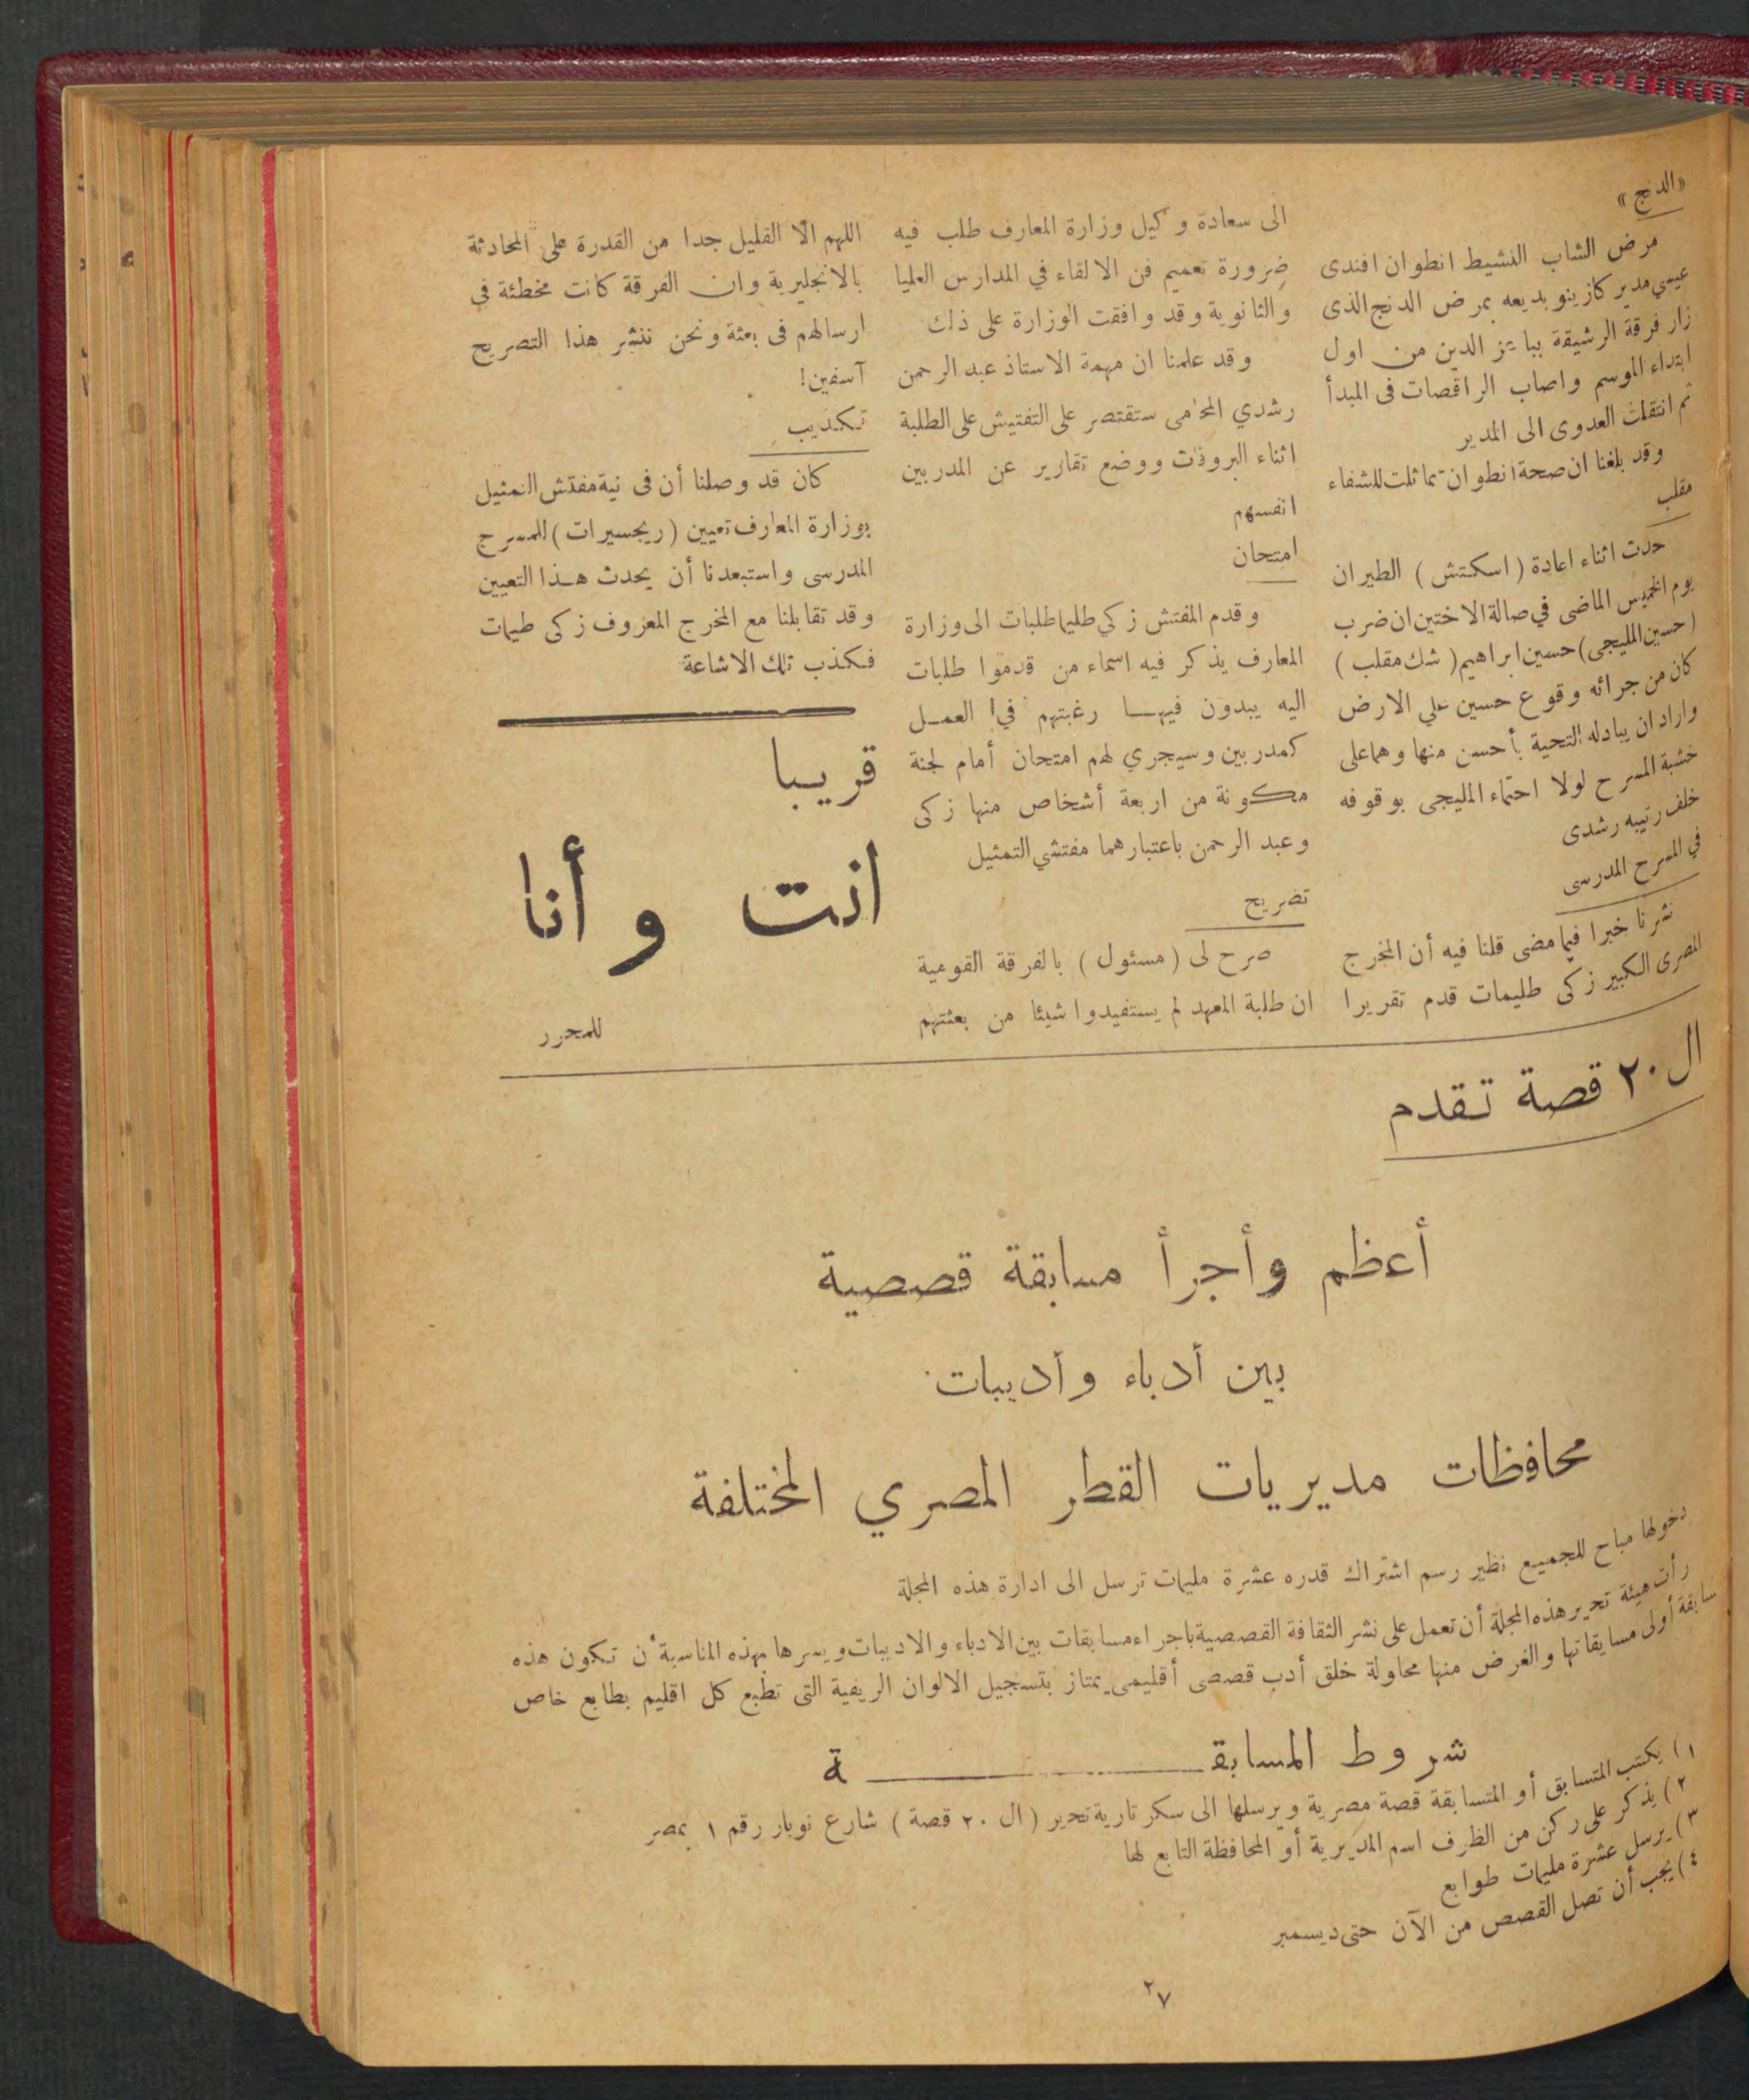 «الدنج»
مرض الشاب النشيط انطوان افندى
عيسي مدير كازينو بديعه بمرض الدنج الذى
زار فرقة الرشيقة ببا عز الدين من اول
ابتداء الموسم واصاب الراقصات فى المبدأ
ثم انتقلت العدوى الى المدير
وقد بلغنا ان صحة انطوان تماثلت للشفاء
مقلب
حدث اثناء اعادة (اسكتش) الطيران
يوم الخميس الماضى في صالة الاختين ان ضرب
(حسين المليجى) حسين ابراهيم (شك مقلب)
كان من جرائه وقوع حسين علي الارض
واراد ان يبادله التحية بأحسن منها وهما على
خشبة المسرح لولا احتماء المليجى بوقوفه
خلف رتيبه رشدى
في المسرح المدرسى
نشرنا خبرا فيما مضى قلنا فيه أن المخرج
المصرى الكبير زكى طليمات قدم تقريرا
الى سعادة وكيل وزارة المعارف طلب فيه
ضرورة تعميم فن الالقاء في المدارس العليا
والثانوية وقد وافقت الوزارة على ذلك
وقد علمنا ان مهمة الاستاذ عبد الرحمن
رشدي المحامى ستقتصر على التفتيش على الطلبة
اثناء البروڤات ووضع تقارير عن المدربين
انفسهم
امتحان
وقدم المفتش زكي طليما طلبات الى وزارة
المعارف يذكر فيه اسماء من قدموا طلبات
اليه يبدون فيها رغبتهم في العمل
كمدربين وسيجري لهم امتحان أمام لجنة
مكونة من اربعة أشخاص منها زكى
وعبد الرحمن باعتبارهما مفتشي التمثيل
تصريح
صرح لى (مسئول) بالفرقة القومية
ان طلبة المعهد لم يستفيدوا شيئا من بعثتهم
اللهم الا القليل جدا من القدرة على المحادثة
بالانجليرية وان الفرقة كانت مخطئة في
ارسالهم فى بعثة ونحن ننشر هذا التصريح
آسفين!
تكذيب
كان قد وصلنا أن فى نية مفتش التمثيل
بوزارة المعارف تعيين (ريجسيرات) للمسرح
المدرسى واستبعدنا أن يحدث هذا التعيين
وقد تقابلنا مع المخرج المعروف زكى طيمات
فكذب تلك الاشاعة
قريبا
انت وأنا
للمحرر
ال ٢٠ قصة تقدم
أعظم وأجرأ مسابقة قصصية
بين أدباء وأديبات
محافظات مديريات القطر المصري المختلفة
دخولها مباح للجميع نظير رسم اشتراك قدره عشرة مليمات ترسل الى ادارة هذه المجلة
رأت هيئة تحرير هذه المجلة أن تعمل على نشر الثقافة القصصية باجراء مسابقات بين الادباء والاديبات ويسرها بهذه المناسبة أن تكون هذه
سابقة أولى مسابقاتها والغرض منها محاولة خلق أدب قصصى أقليمى يمتاز بتسجيل الالوان الريفية التى تطبع كل اقليم بطابع خاص
شروط المسابقة
١) يكتب المتسابق أو المتسابقة قصة مصرية ويرسلها الى سكرتارية تحرير (ال ٢٠ قصة) شارع نوبار رقم ١ بمصر
٢) يذكر على ركن من الظرف اسم المديرية أو المحافظة التابع لها
٣) يرسل عشرة مليمات طوابع
٤) يجب أن تصل القصص من الآن حتى ديسمبر
٢٧